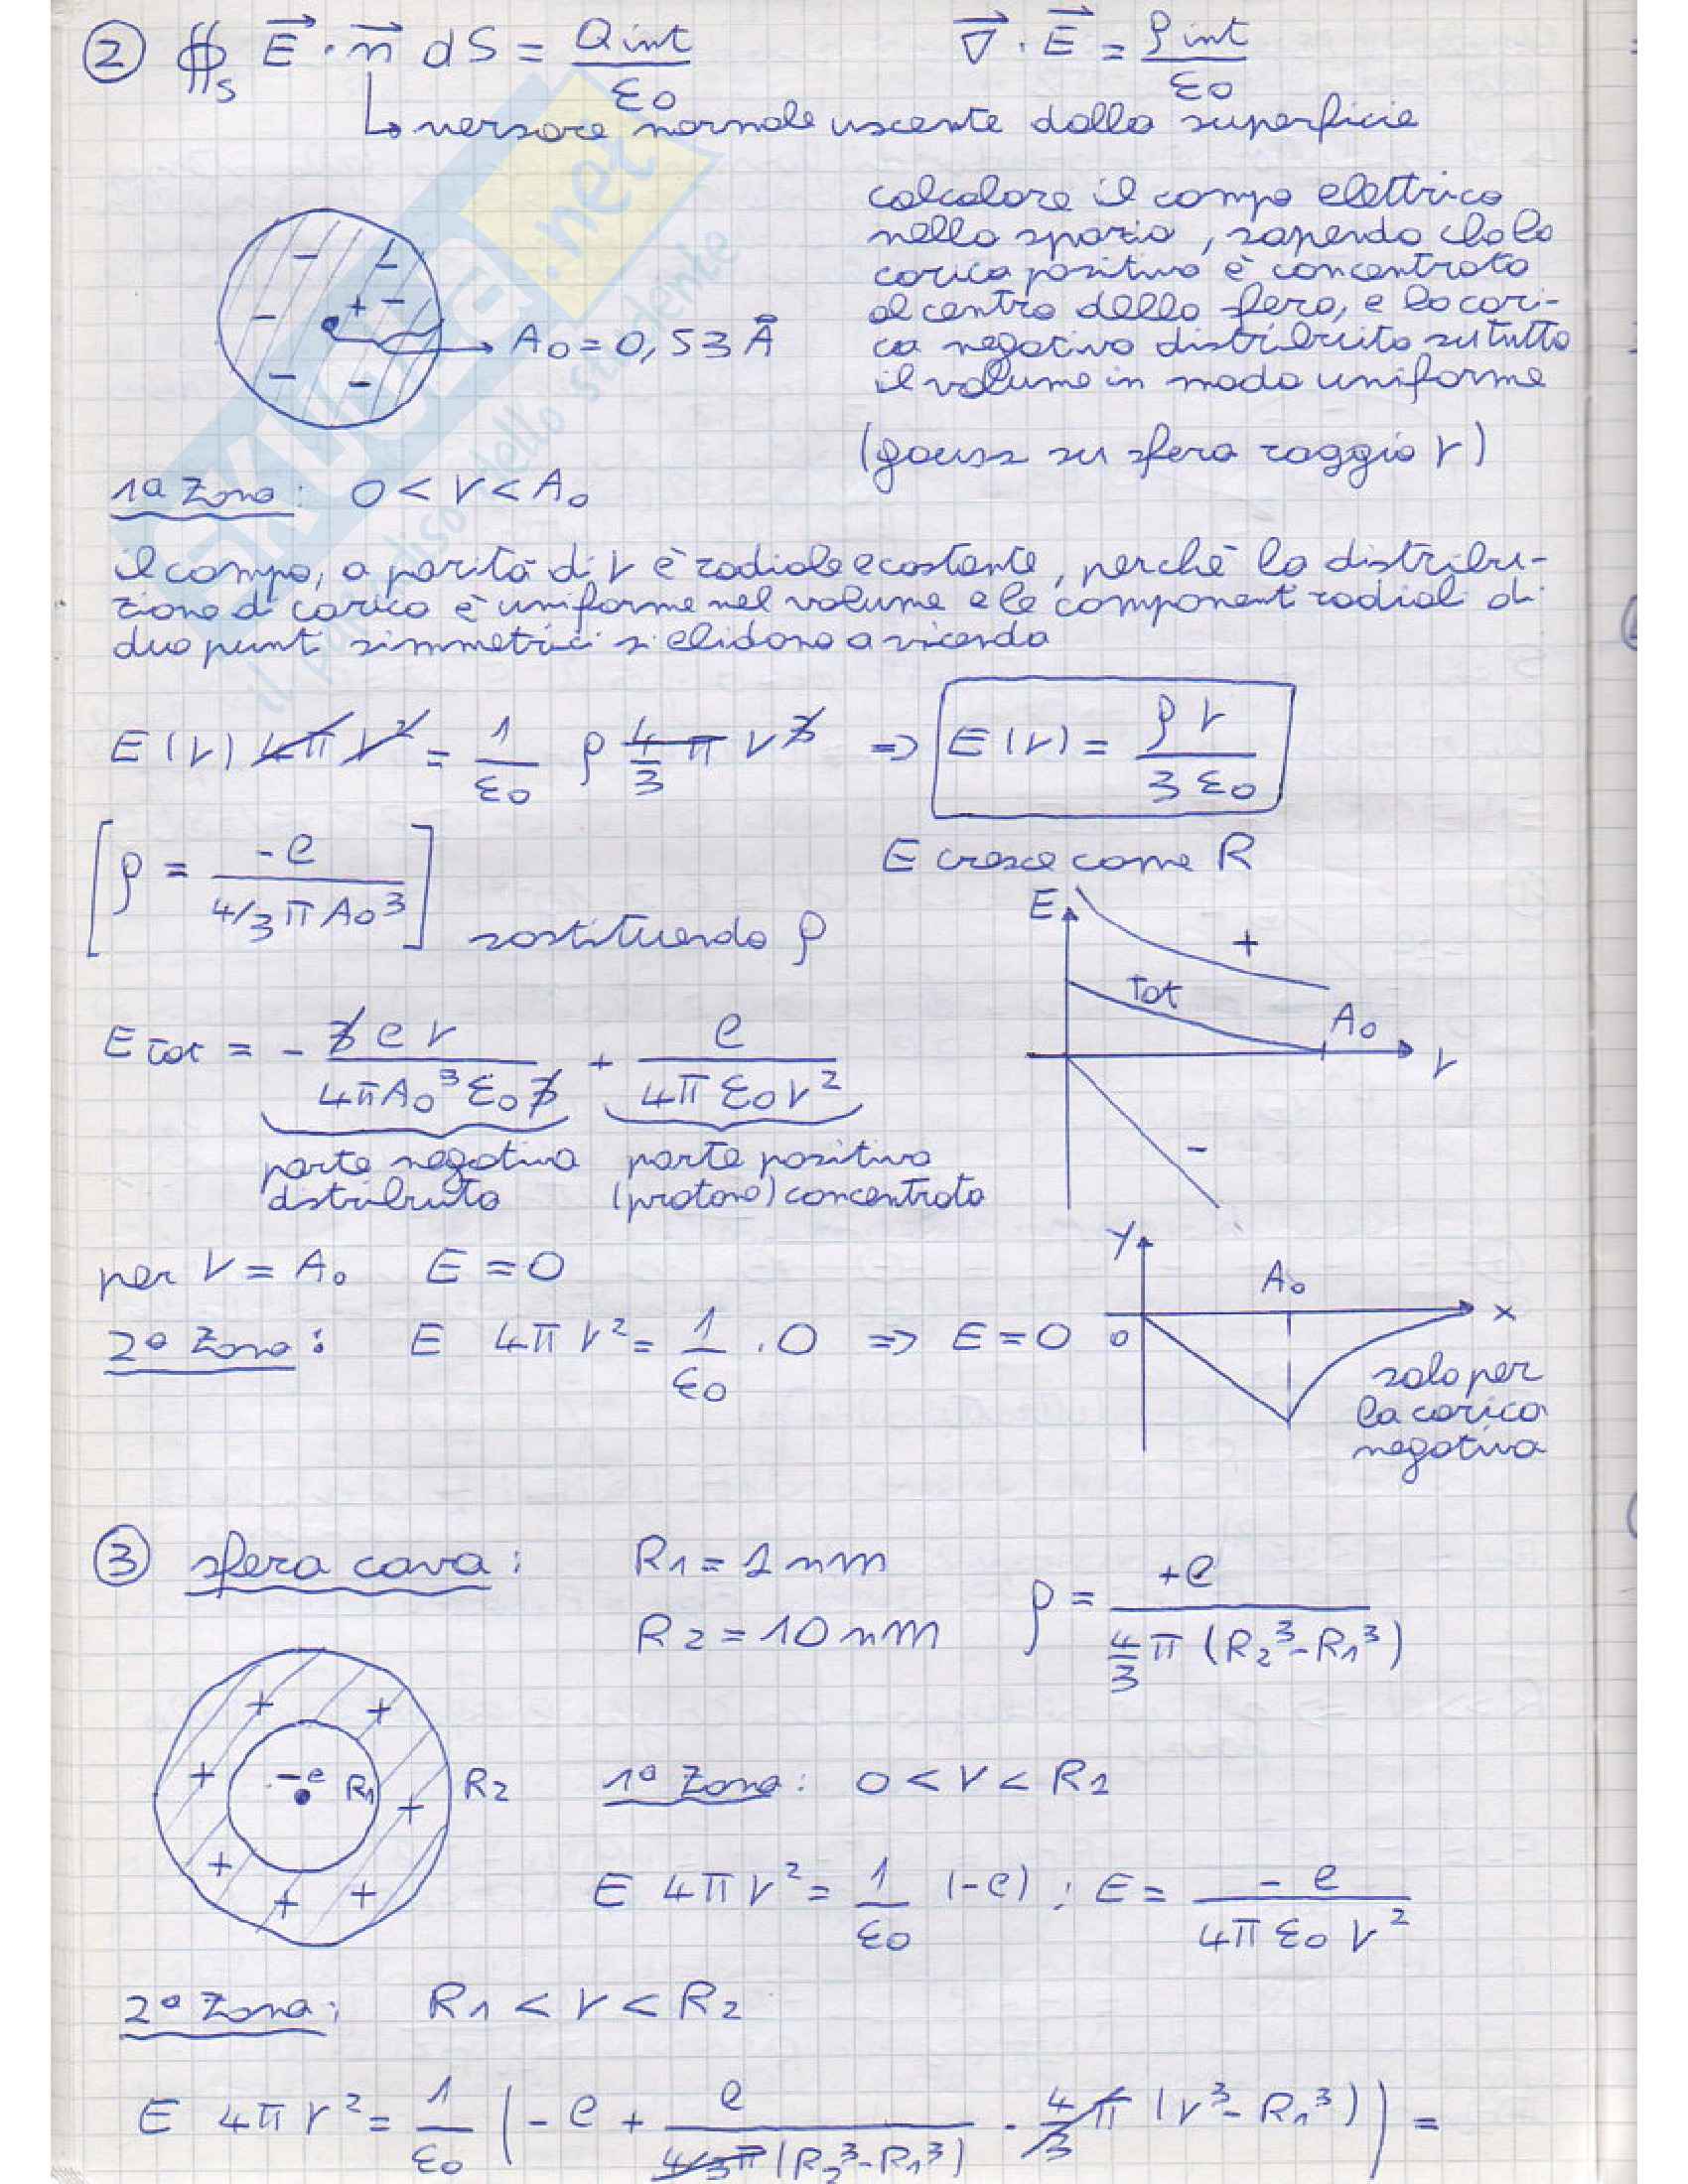 ② ∯_S E⃗ · n⃗ dS = Qint/ε0    ∇⃗ · E⃗ = ρint/ε0
↳ versore normale uscente dalla superficie
calcolare il campo elettrico
nello spazio, sapendo che la
carica positiva è concentrata
al centro della sfera, e la cari-
ca negativa distribuita su tutto
il volume in modo uniforme
(gauss su sfera raggio r)
- - - - - - + → A0 = 0,53 Å
1a Zona: 0 < r < A0
il campo, a parità di r è radiale e costante, perchè la distribu-
zione di carica è uniforme nel volume e le componenti radiali di
due punti simmetrici si elidono a vicenda
E(r) 4π r² = 1/ε0 ρ 4/3 π r³ => E(r) = ρ r / 3 ε0
[ρ = -e / 4/3 π A0³] sostituendo ρ
E cresce come R
E + tot A0 r -
E tot = - 3 e r / 4π A0³ ε0 3 + e / 4π ε0 r²
parte negativa distribuita
parte positiva (protone) concentrata
per r = A0 E = 0
2a Zona: E 4π r² = 1/ε0 · 0 => E = 0
y A0 x 0
solo per
la carica
negativa
③ sfera cava: R1 = 1 nm
R2 = 10 nm
ρ = +e / 4/3 π (R2³ - R1³)
+ + + + + + + -e R1 R2
1a Zona: 0 < r < R1
E 4π r² = 1/ε0 (-e) ; E = -e / 4π ε0 r²
2a Zona: R1 < r < R2
E 4π r² = 1/ε0 (-e + e / 4/3 π (R2³ - R1³) · 4/3 π (r³ - R1³)) =
SKUOLA.net
il paradiso dello studente